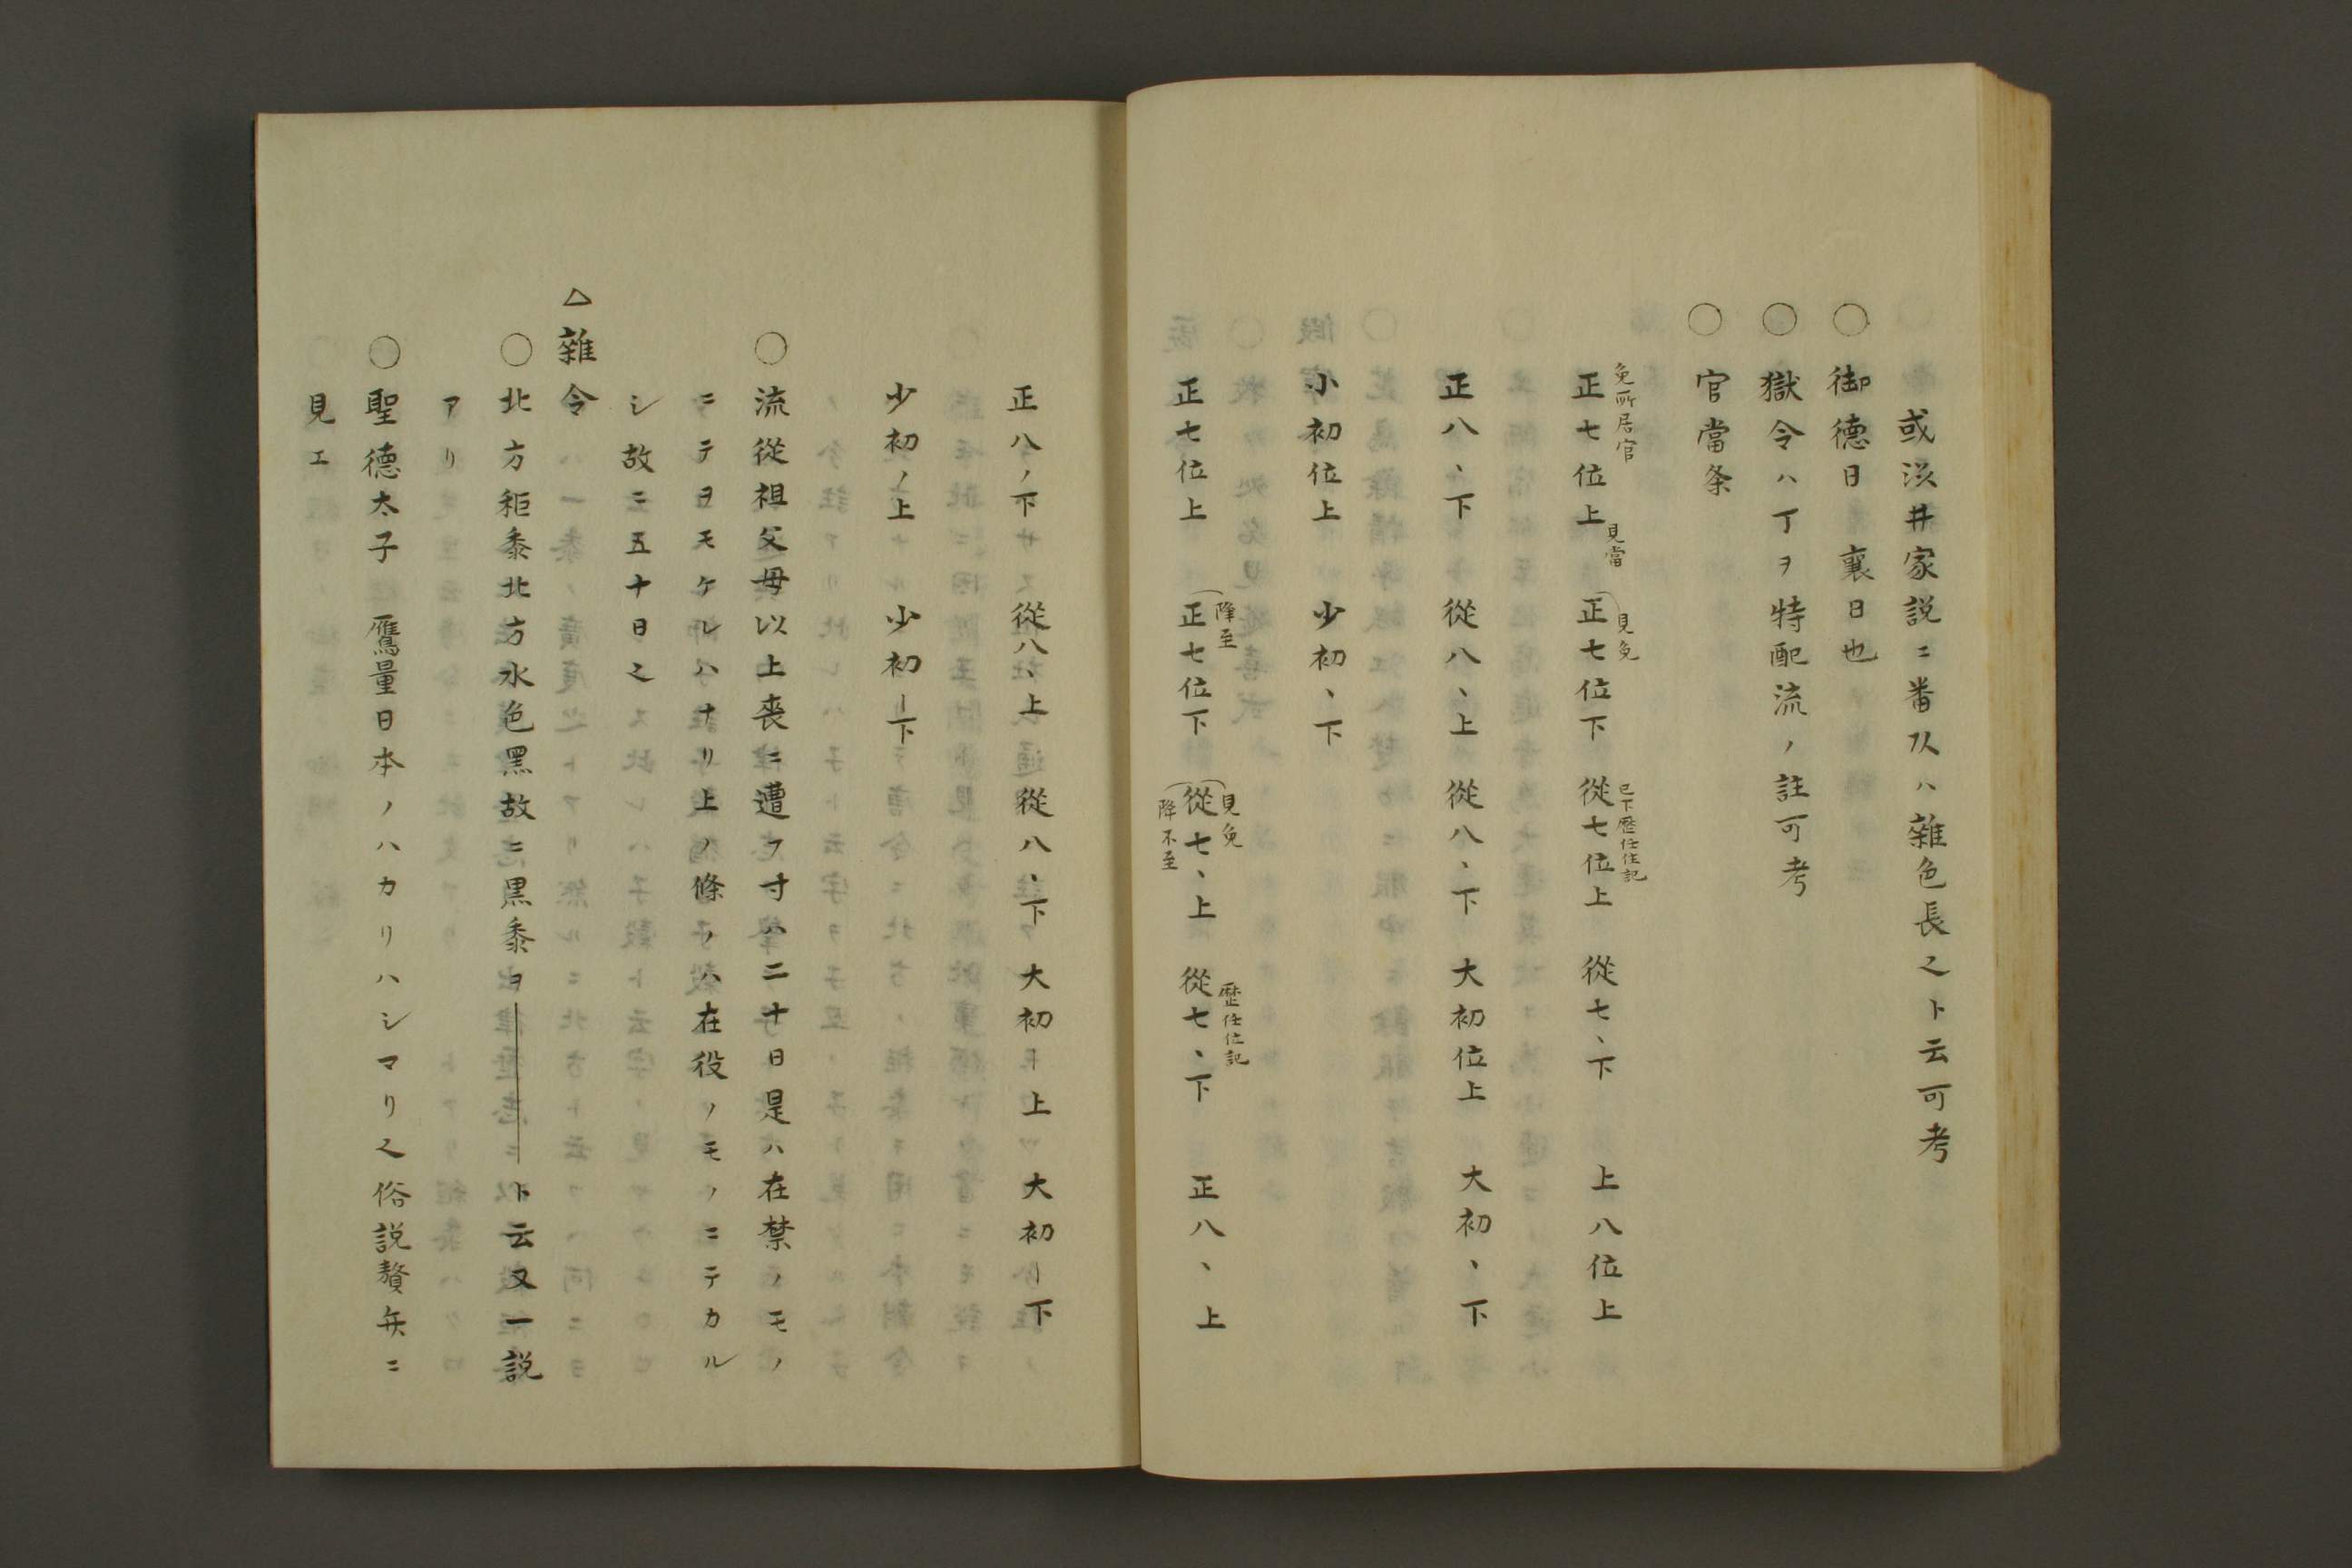 或淡井家説ニ番以ハ雜色長之ト云可考
○御德日　襄日也
○獄令ハ丁ヲ特配流ノ註可考
○官當条
免所居官
正七位上 見當　正七位下 見免　從七位上 已下歷任位記　從七、下　上八位上
正八、下　從八、上　從八、下　大初位上　大初、下
小初位上　少初、下
正七位上　正七位下 降至　從七、上 見免 降不至　從七、下 歷任位記　正八、上
正八ノ下　從八、上　從八、下　大初ー上　大初ー下
少初ノ上　少初ー下
○流從祖父母以上喪ニ遭フ寸ハ二十日是ハ在禁ノモノ
ニテヨモケレハナリ上ノ條ノハ在役ノモノニテカル
シ故ニ五十日之
△雜令
○北方秬黍北方水色黑故ニ黒黍ヨ――ト云又一説
アリ
○聖德太子　鷹量日本ノハカリハシマリ之俗説贅弁ニ
見エ